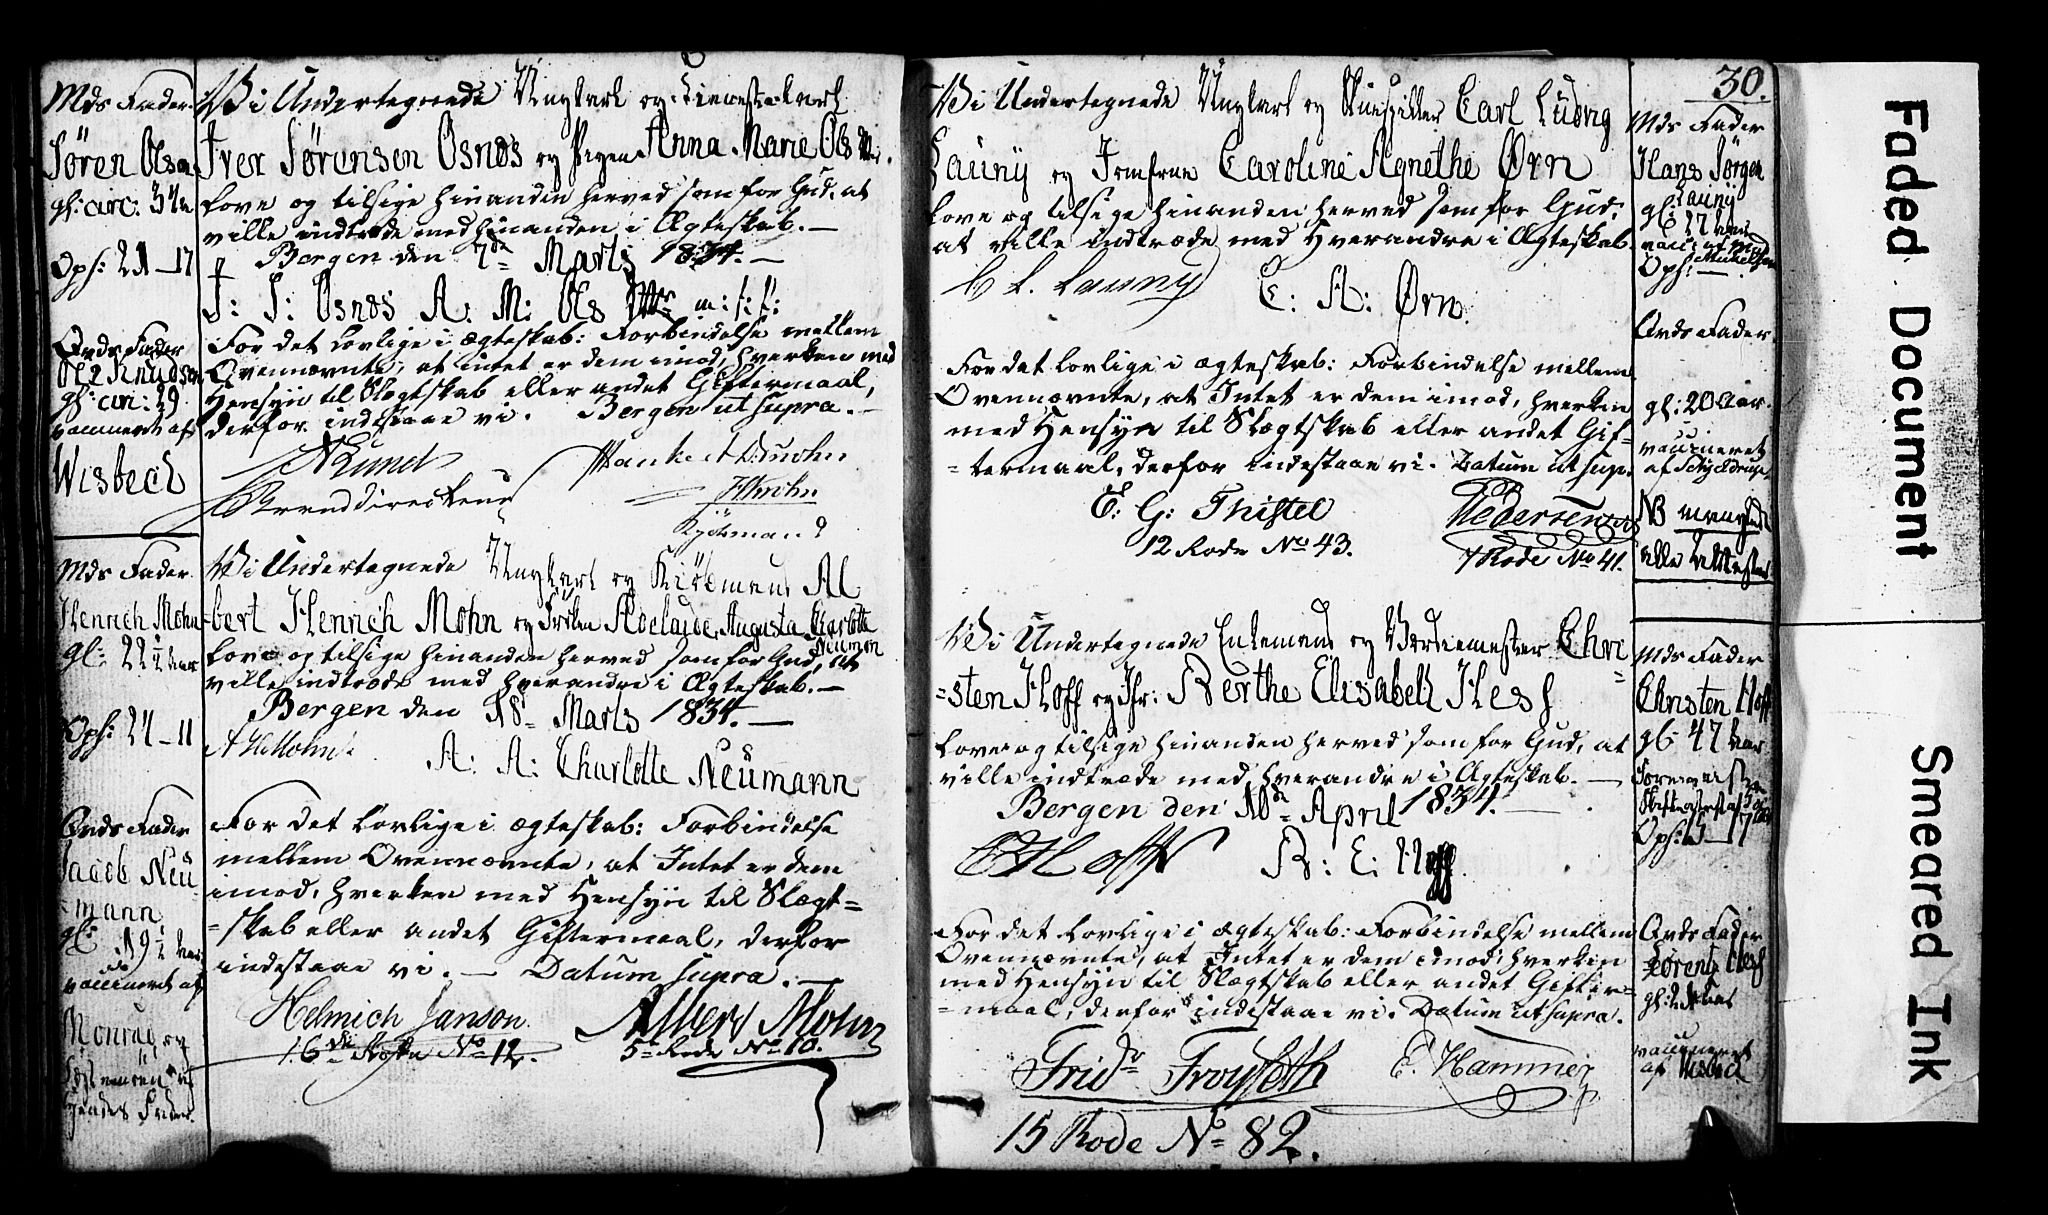 Mds Fader
Søren Olsen
gl: circ: 34
Ops: 21-17
Brds Fader
Ole Knudsen
gl: circ: 29
vaccineret af
Wisbech
Vi Undertegnede Ungkarl og
Iver Sørensen Osnæs og Pigen Anna Marie Ols Dtr.
love og tilsige hinanden herved som for Gud, at
ville indtræde med hinanden i Ægteskab.—
Bergen den 7de Marts 1834.—
I: S: Osnæs A: M: Ols Dtr m: f: P:
For det lovlige i ægteskab: Forbindelse mellem
Ovennævnte, at intet er dem imod, hverken med
Hensyn til Slægtskab eller andet Giftermaal,
derfor indestaae vi. Bergen ut supra.—
Branddirecteur
Kjøbmand
Mds Fader
Henrich Mohn
gl: 22½ Aar
Ops: 24-11
Brds Fader
Jacob Neu
=mann
gl: 19½ Aar
vaccineret af
Monrad og
Vi Undertegnede Ungkarl og Kiøbmand Al
=bert Henrich Mohn og Frøken Adelaide Augusta Charlotte
Neumann
love og tilsige hinanden herved som for Gud, at
ville indtræde med hverandre i Ægteskab.—
Bergen den 18de Marts 1834.—
A H Mohn
A: A: Charlotte Neumann
For det lovlige i ægteskab: Forbindelse
mellem Ovennævnte, at Intet er dem
imod, hverken med Hensyn til Slægt=
=skab eller andet Giftermaal, derfor
indestaae vi.— Datum supra.—
Helmich Janson
16de Rode No 12.
Albert Mohn
5te Rode No 10.
30.
Vi Undertegnede Ungkarl og Skuespiller Carl Ludvig
Launy og Jomfrue Caroline Agnethe Ørn
love og tilsige hinanden herved som for Gud,
at ville indtræde med Hverandre i Ægteskab.
C L. Launy
C: A: Ørn.
For det lovlige i ægteskab: Forbindelse mellem
Ovennævnte, at Intet er dem imod, hverken
med Hensyn til Slægtskab eller andet Gif=
=termaal, derfor indestaae vi. Datum ut sup.
E: G: Thistel
12 Rode No 43.
Pedersen
7 Rode No 41.
Mds Fader
Hans Jørgen
Launy
gl: 27 Aar
Ops: —
Brds Fader
gl: 20 Aar
vaccineret
af
NB mangler
alle Attester
Vi Undertegnede Enkemand og Chri
=sten Hoff og Jfr: Berthe Elisabeth Hess
love og tilsige hinanden herved som for Gud, at
ville indtræde med hverandre i Ægteskab.—
Bergen den 10de April 1834.—
C Hoff
B: E: Hess
For det lovlige i ægteskab: Forbindelse mellem
Ovennævnte, at Intet er dem imod, hverken
med Hensyn til Slægtskab eller andet Gifter=
=maal, derfor indestaae vi. Datum ut supra.
Frid:
E. Hammer
15 Rode No 82.
Mds Fader
Christen Hoff
gl: 47 Aar
Brds Fader
Lorentz Hess
vaccineret
af Wisbech
Faded Document
Smeared Ink